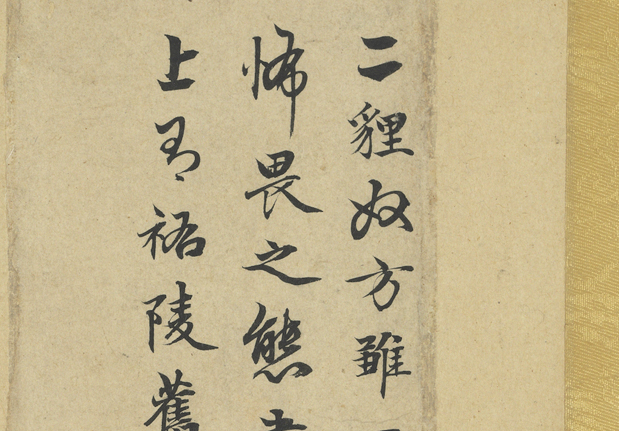 二貍奴方雖
怖畏之態
上有祐陵舊